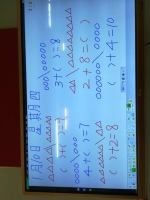 月10日 星期四
3+( )=8
4+( )=7 2+8=( )
( )+2=8 ( )+4=10